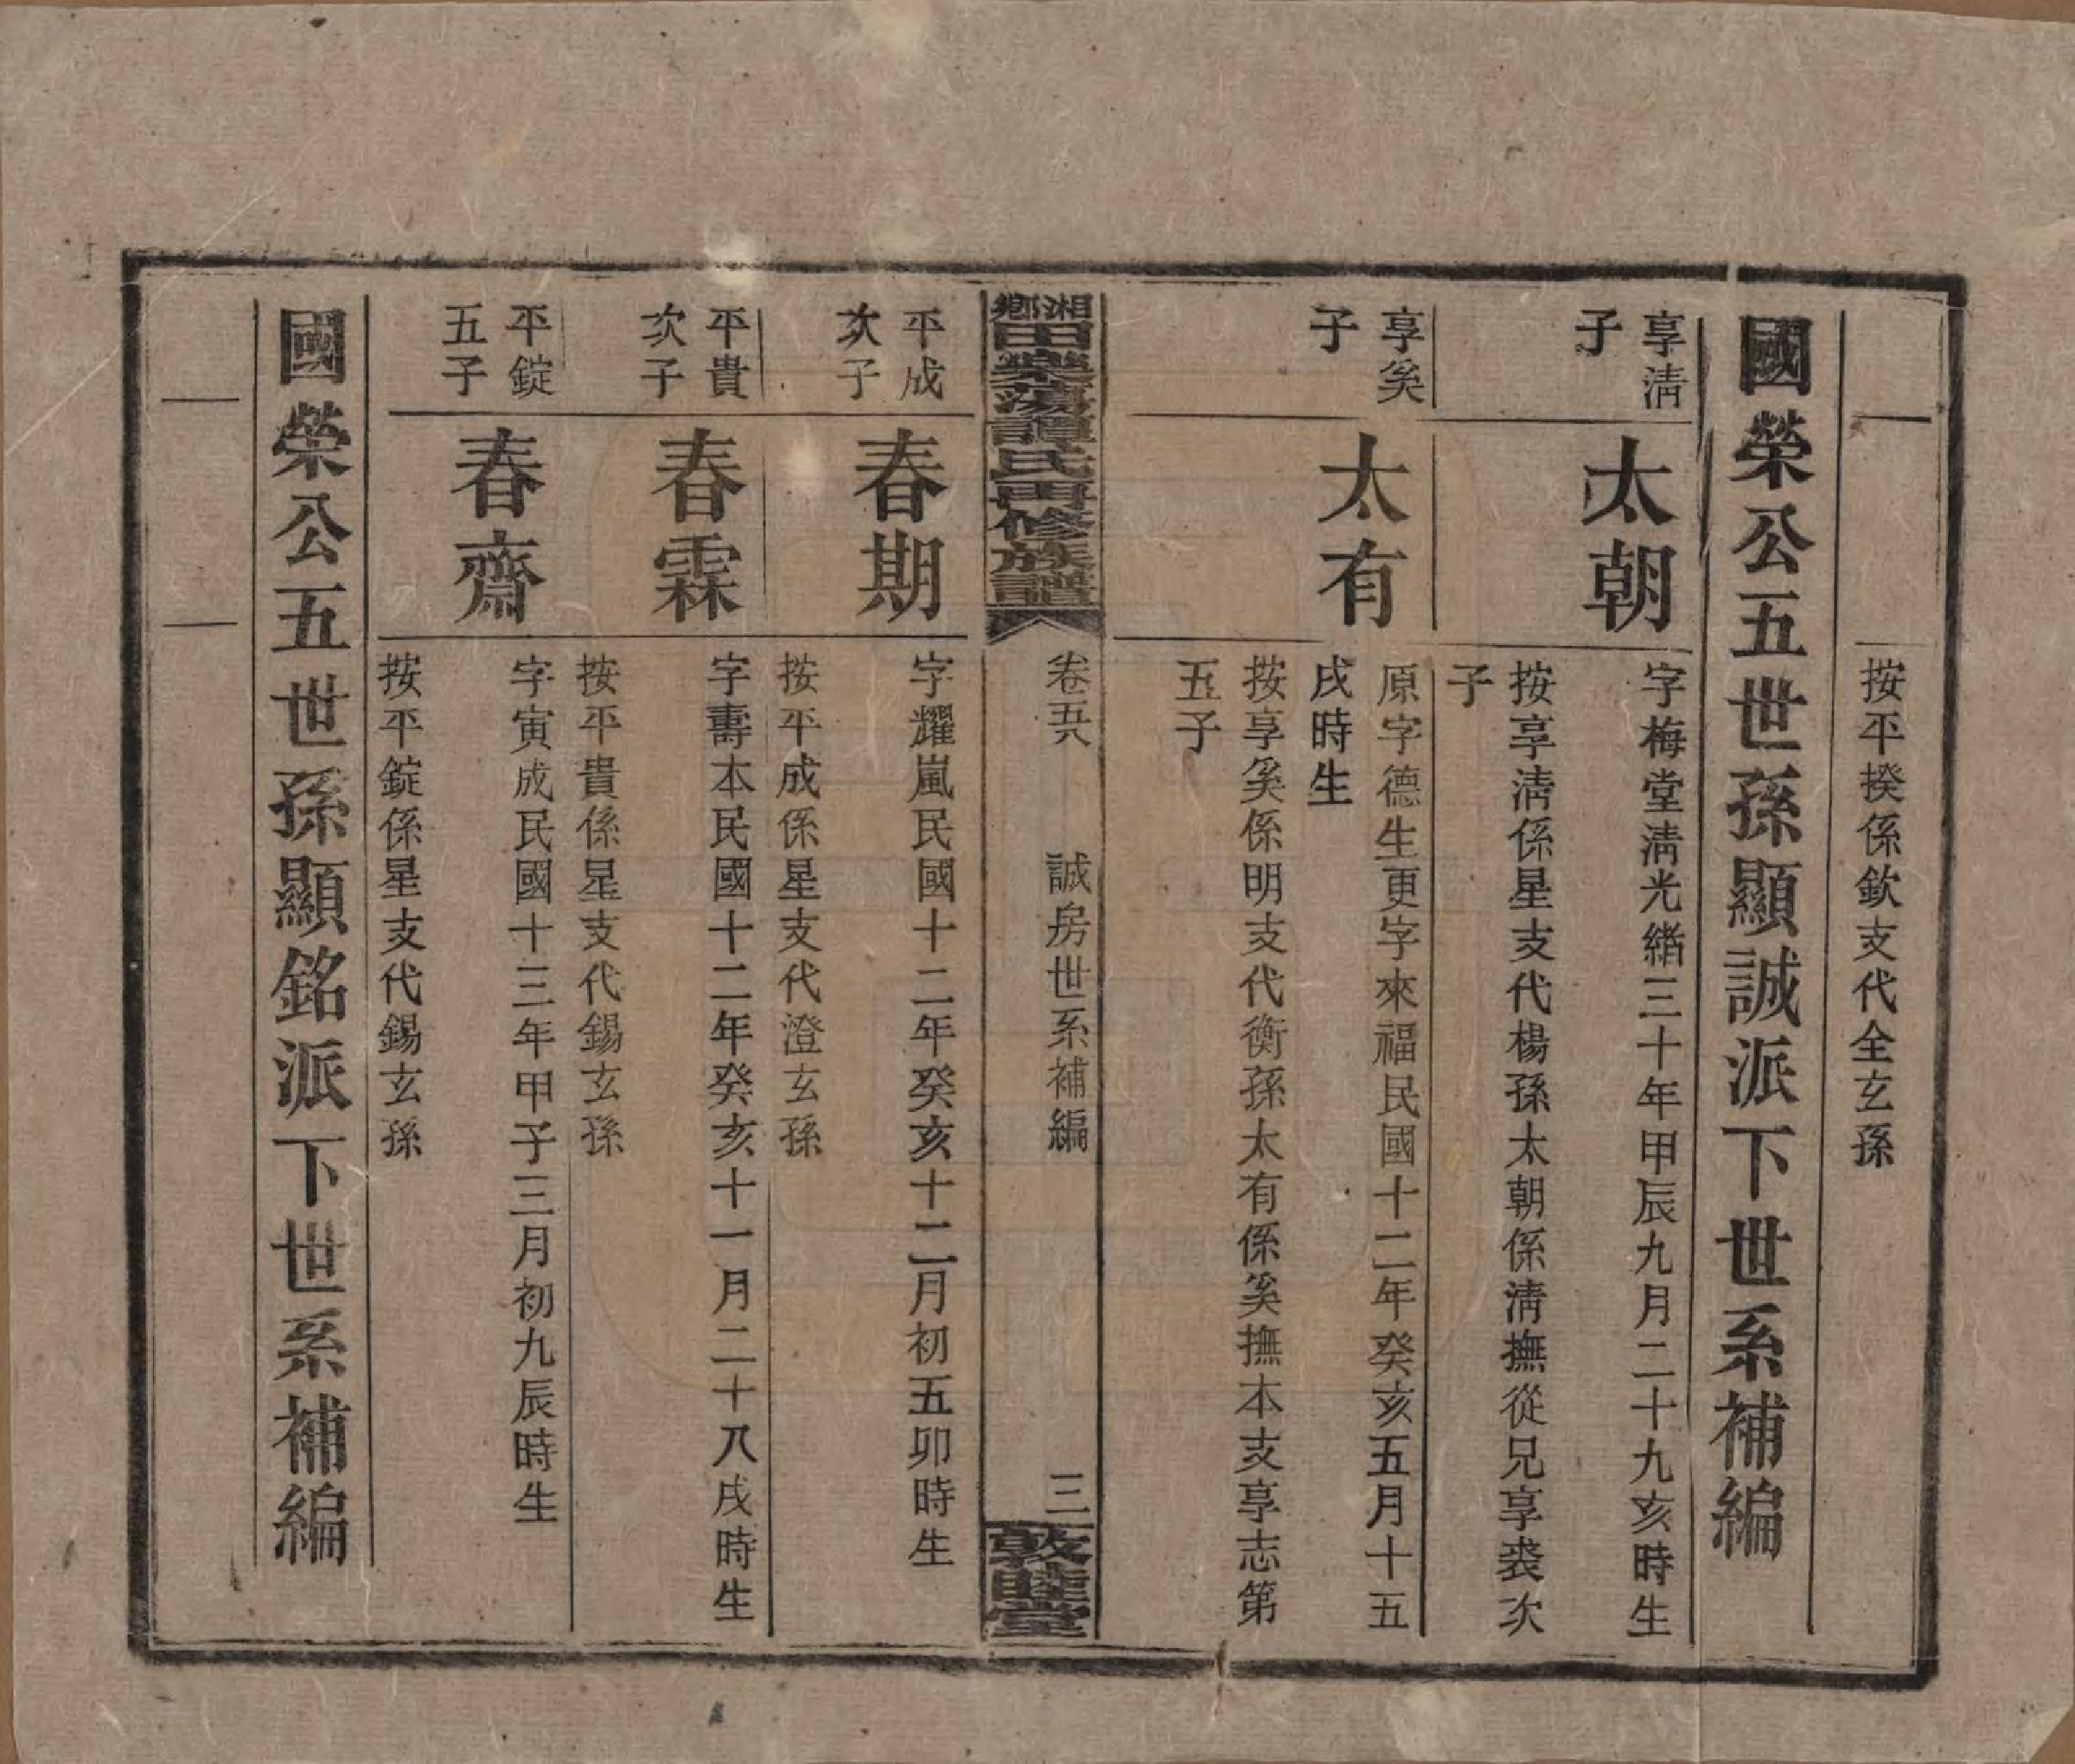 按平揆係欽支代全玄孫
國榮公五世孫顯誠派下世系補編
享清
子
太朝
字梅堂清光緒三十年甲辰九月二十九亥時生
按享清係星支代楊孫太朝係清撫從兄享裘次
子
享奚
子
太有
原字德生更字來福民國十二年癸亥五月十五
戌時生
按享奚係明支代衡孫太有係奚撫本支享志第
五子
湘鄉田樂蕩譚氏再修族譜
卷五八
誠房世系補編
三
敦睦堂
平成
次子
春期
字耀嵐民國十二年癸亥十二月初五卯時生
按平成係星支代澄玄孫
平貴
次子
春霖
字壽本民國十二年癸亥十一月二十八戌時生
按平貴係星支代錫玄孫
平錠
五子
春齋
字寅成民國十三年甲子三月初九辰時生
按平錠係星支代錫玄孫
國榮公五世孫顯銘派下世系補編